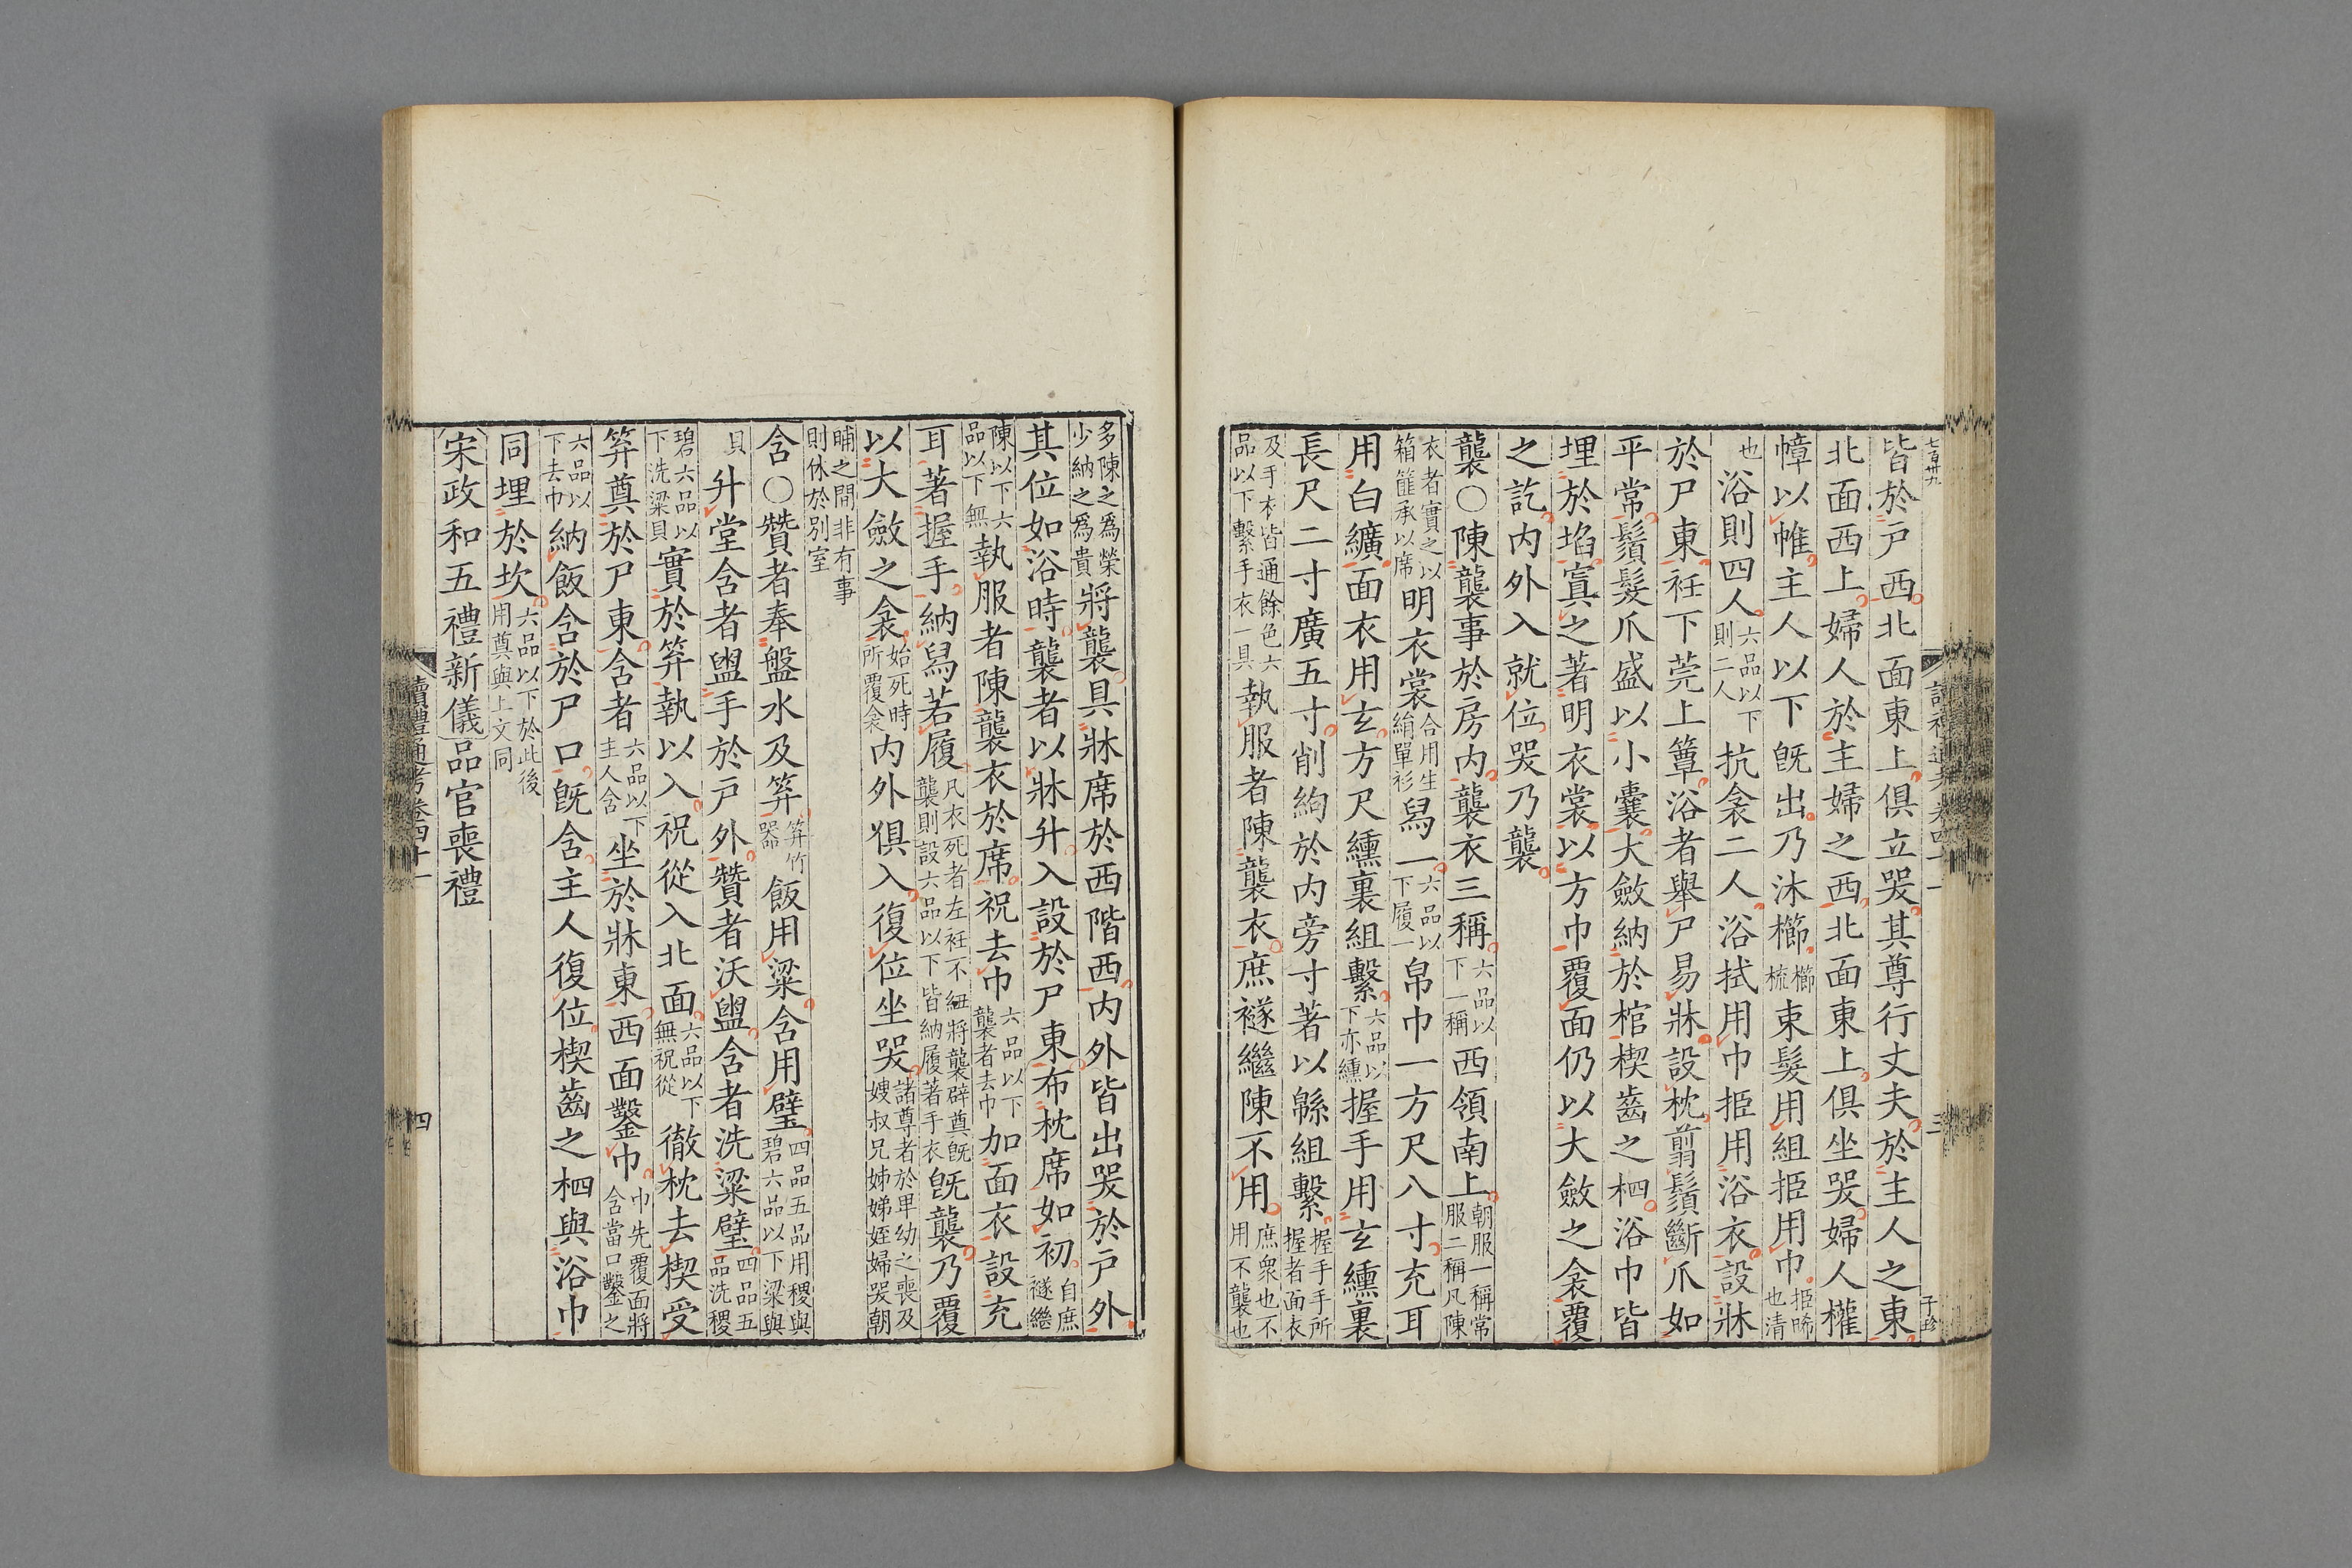 七百卅九
讀禮通考卷四十一
三
子珍
皆於戸西北面東上俱立哭其尊行丈夫於主人之東
北面西上婦人於主婦之西北面東上俱坐哭婦人權
幛以帷主人以下旣出乃沐櫛櫛梳束髮用組挋用巾挋晞也清
也浴則四人六品以下則二人抗衾二人浴拭用巾挋用浴衣設牀
於尸東衽下莞上簟浴者舉尸易牀設枕翦鬚斷爪如
平常鬚髮爪盛以小囊大斂納於棺楔齒之柶浴巾皆
埋於埳寘之著明衣裳以方巾覆面仍以大斂之衾覆
之訖内外入就位哭乃襲
襲○陳襲事於房内襲衣三稱六品以下一稱西領南上朝服一稱常服二稱凡陳
衣者實之以箱篚承以席明衣裳合用生絹單衫舄一六品以下履一帛巾一方尺八寸充耳
用白纊面衣用玄方尺纁裏組繫六品以下亦纁握手用玄纁裏
長尺二寸廣五寸削絇於内旁寸著以緜組繫握手手所握者面衣
及手衣皆通餘色六品以下繫手衣一具執服者陳襲衣庶襚繼陳不用庶衆也不用不襲也
多陳之爲榮少納之爲貴將襲具牀席於西階西内外皆出哭於戸外
其位如浴時襲者以牀升入設於尸東布枕席如初自庶襚繼
陳以下六品以下無執服者陳襲衣於席祝去巾六品以下襲者去巾加面衣設充
耳著握手納舄若履凡衣死者左衽不紐將襲辟奠旣襲則設六品以下皆納履著手衣旣襲乃覆
以大斂之衾始死時所覆衾内外俱入復位坐哭諸尊者於卑幼之喪及嫂叔兄姊娣姪婦哭朝
晡之間非有事則休於別室
含○贊者奉盤水及笲笲竹器飯用粱含用璧四品五品用稷與碧六品以下粱與
貝升堂含者盥手於戸外贊者沃盥含者洗粱璧四品五品洗稷
碧六品以下洗粱貝實於笲執以入祝從入北面六品以下無祝從徹枕去楔受
笲奠於尸東含者六品以下主人含坐於牀東西面鑿巾巾先覆面將含當口鑿之
六品以下去巾納飯含於尸口旣含主人復位楔齒之柶與浴巾
同埋於坎六品以下於此後用奠與上文同
宋政和五禮新儀品官喪禮
讀禮通考卷四十一
四